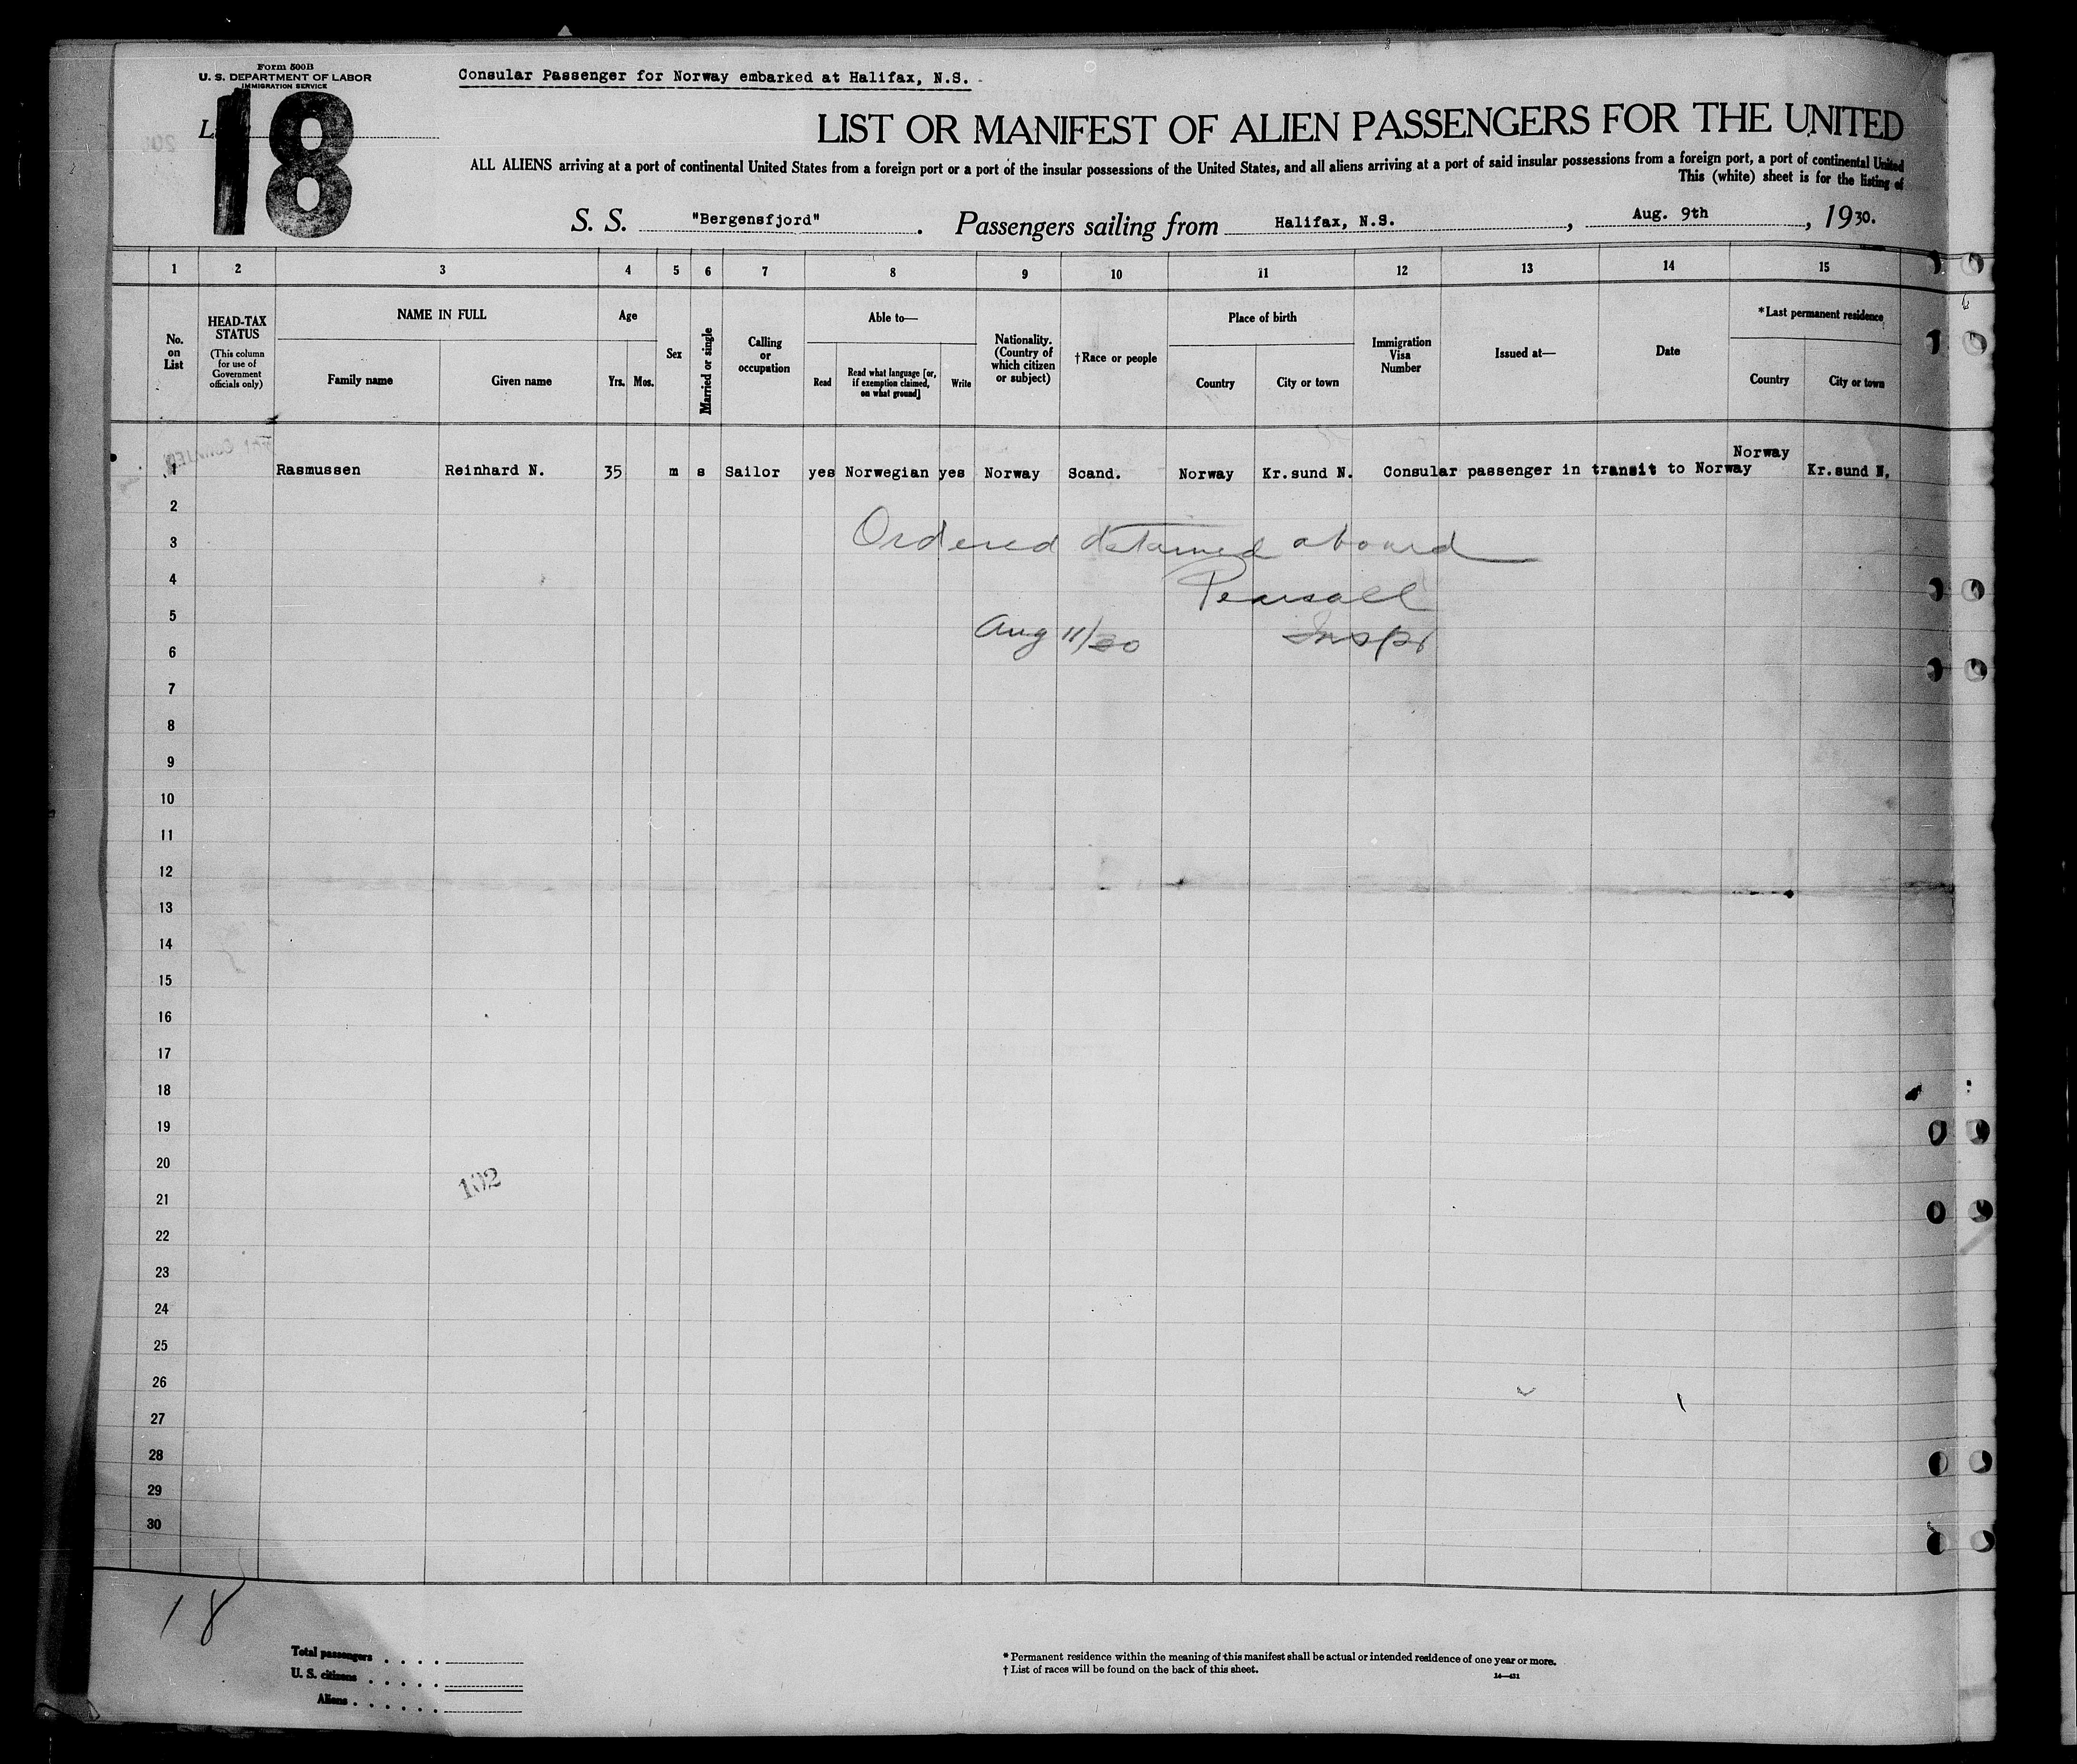 Form 500B
U. S. DEPARTMENT OF LABOR
IMMIGRATION SERVICE
Consular Passenger for Norway embarked at Halifax, N.S.
18
LIST OR MANIFEST OF ALIEN PASSENGERS FOR THE UNITED
ALL ALIENS arriving at a port of continental United States from a foreign port or a port of the insular possessions of the United States, and all aliens arriving at a port of said insular possessions from a foreign port, a port of continental United
This (white) sheet is for the listing of
S. S. "Bergensfjord". Passengers sailing from Halifax, N.S., Aug. 9th, 1930.
1 2 3 4 5 6 7 8 9 10 11 12 13 14 15
No. on List
HEAD-TAX STATUS
(This column for use of Government officials only)
NAME IN FULL
Family name
Given name
Age
Yrs. Mos.
Sex
Married or single
Calling or occupation
Able to—
Read
Read what language [or, if exemption claimed, on what ground]
Write
Nationality. (Country of which citizen or subject)
†Race or people
Place of birth
Country
City or town
Immigration Visa Number
Issued at—
Date
*Last permanent residence
Country
City or town
1 Rasmussen Reinhard N. 35 m s Sailor yes Norwegian yes Norway Scand. Norway Kr.sund N. Consular passenger in transit to Norway Norway Kr.sund N.
2
3 Ordered detained aboard
4 Pearsall
5 Aug 11/30 Inspr
6
7
8
9
10
11
12
13
14
15
16
17
18
19
20
102
21
22
23
24
25
26
27
28
29
30
18
Total passengers . . . .
U. S. citizens . . . . .
Aliens . . . . . .
* Permanent residence within the meaning of this manifest shall be actual or intended residence of one year or more.
† List of races will be found on the back of this sheet.
14—431